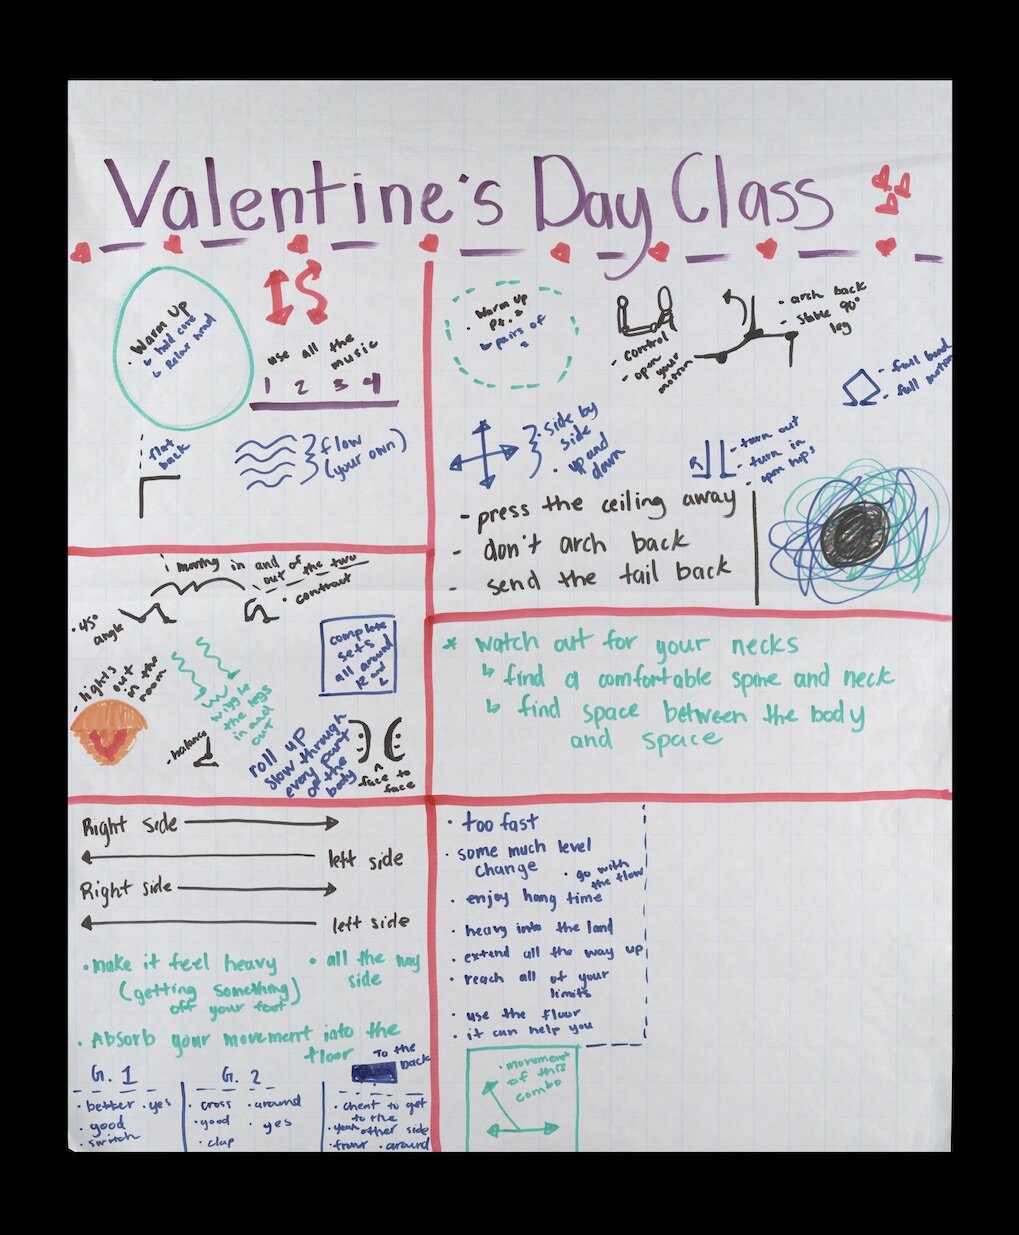 Valentine's Day Class
• Warm Up
↳ hold core
↳ Relax head
use all the
music
1 2 3 4
flat
back
flow
(your own)
• Warm up
Pt. 2
↳ pairs of
2
- control
- open
your
motion
- arch back
- stable 90°
leg
- full bend
- full motion
• side by
side
• up and
down
- turn out
- turn in
- open hips
- press the ceiling away
- don't arch back
- send the tail back
moving in and
out of
the two
• contract
• 45°
angle
complete
sets
all around
- lights
out
in the
room
wiggle
the legs
in and
out
- balance
roll up
slow through
every part
of the
body
face to
face
* watch out for your necks
↳ find a comfortable spine and neck
↳ find space between the body
and space
Right side
left side
Right side
left side
• make it feel heavy
(getting something)
off your foot
• all the way
side
• Absorb your movement into the
floor
G. 1
• better • yes
• good
• switch
G. 2
• cross • around
• good • yes
• clap
To the
back
• cheat to get
to the
• yeah other side
• front • around
• too fast
• some much level
change
• go with
the flow
• enjoy hang time
• heavy into the land
• extend all the way up
• reach all of your
limits
• use the floor
• it can help you
• movement
of this
combo